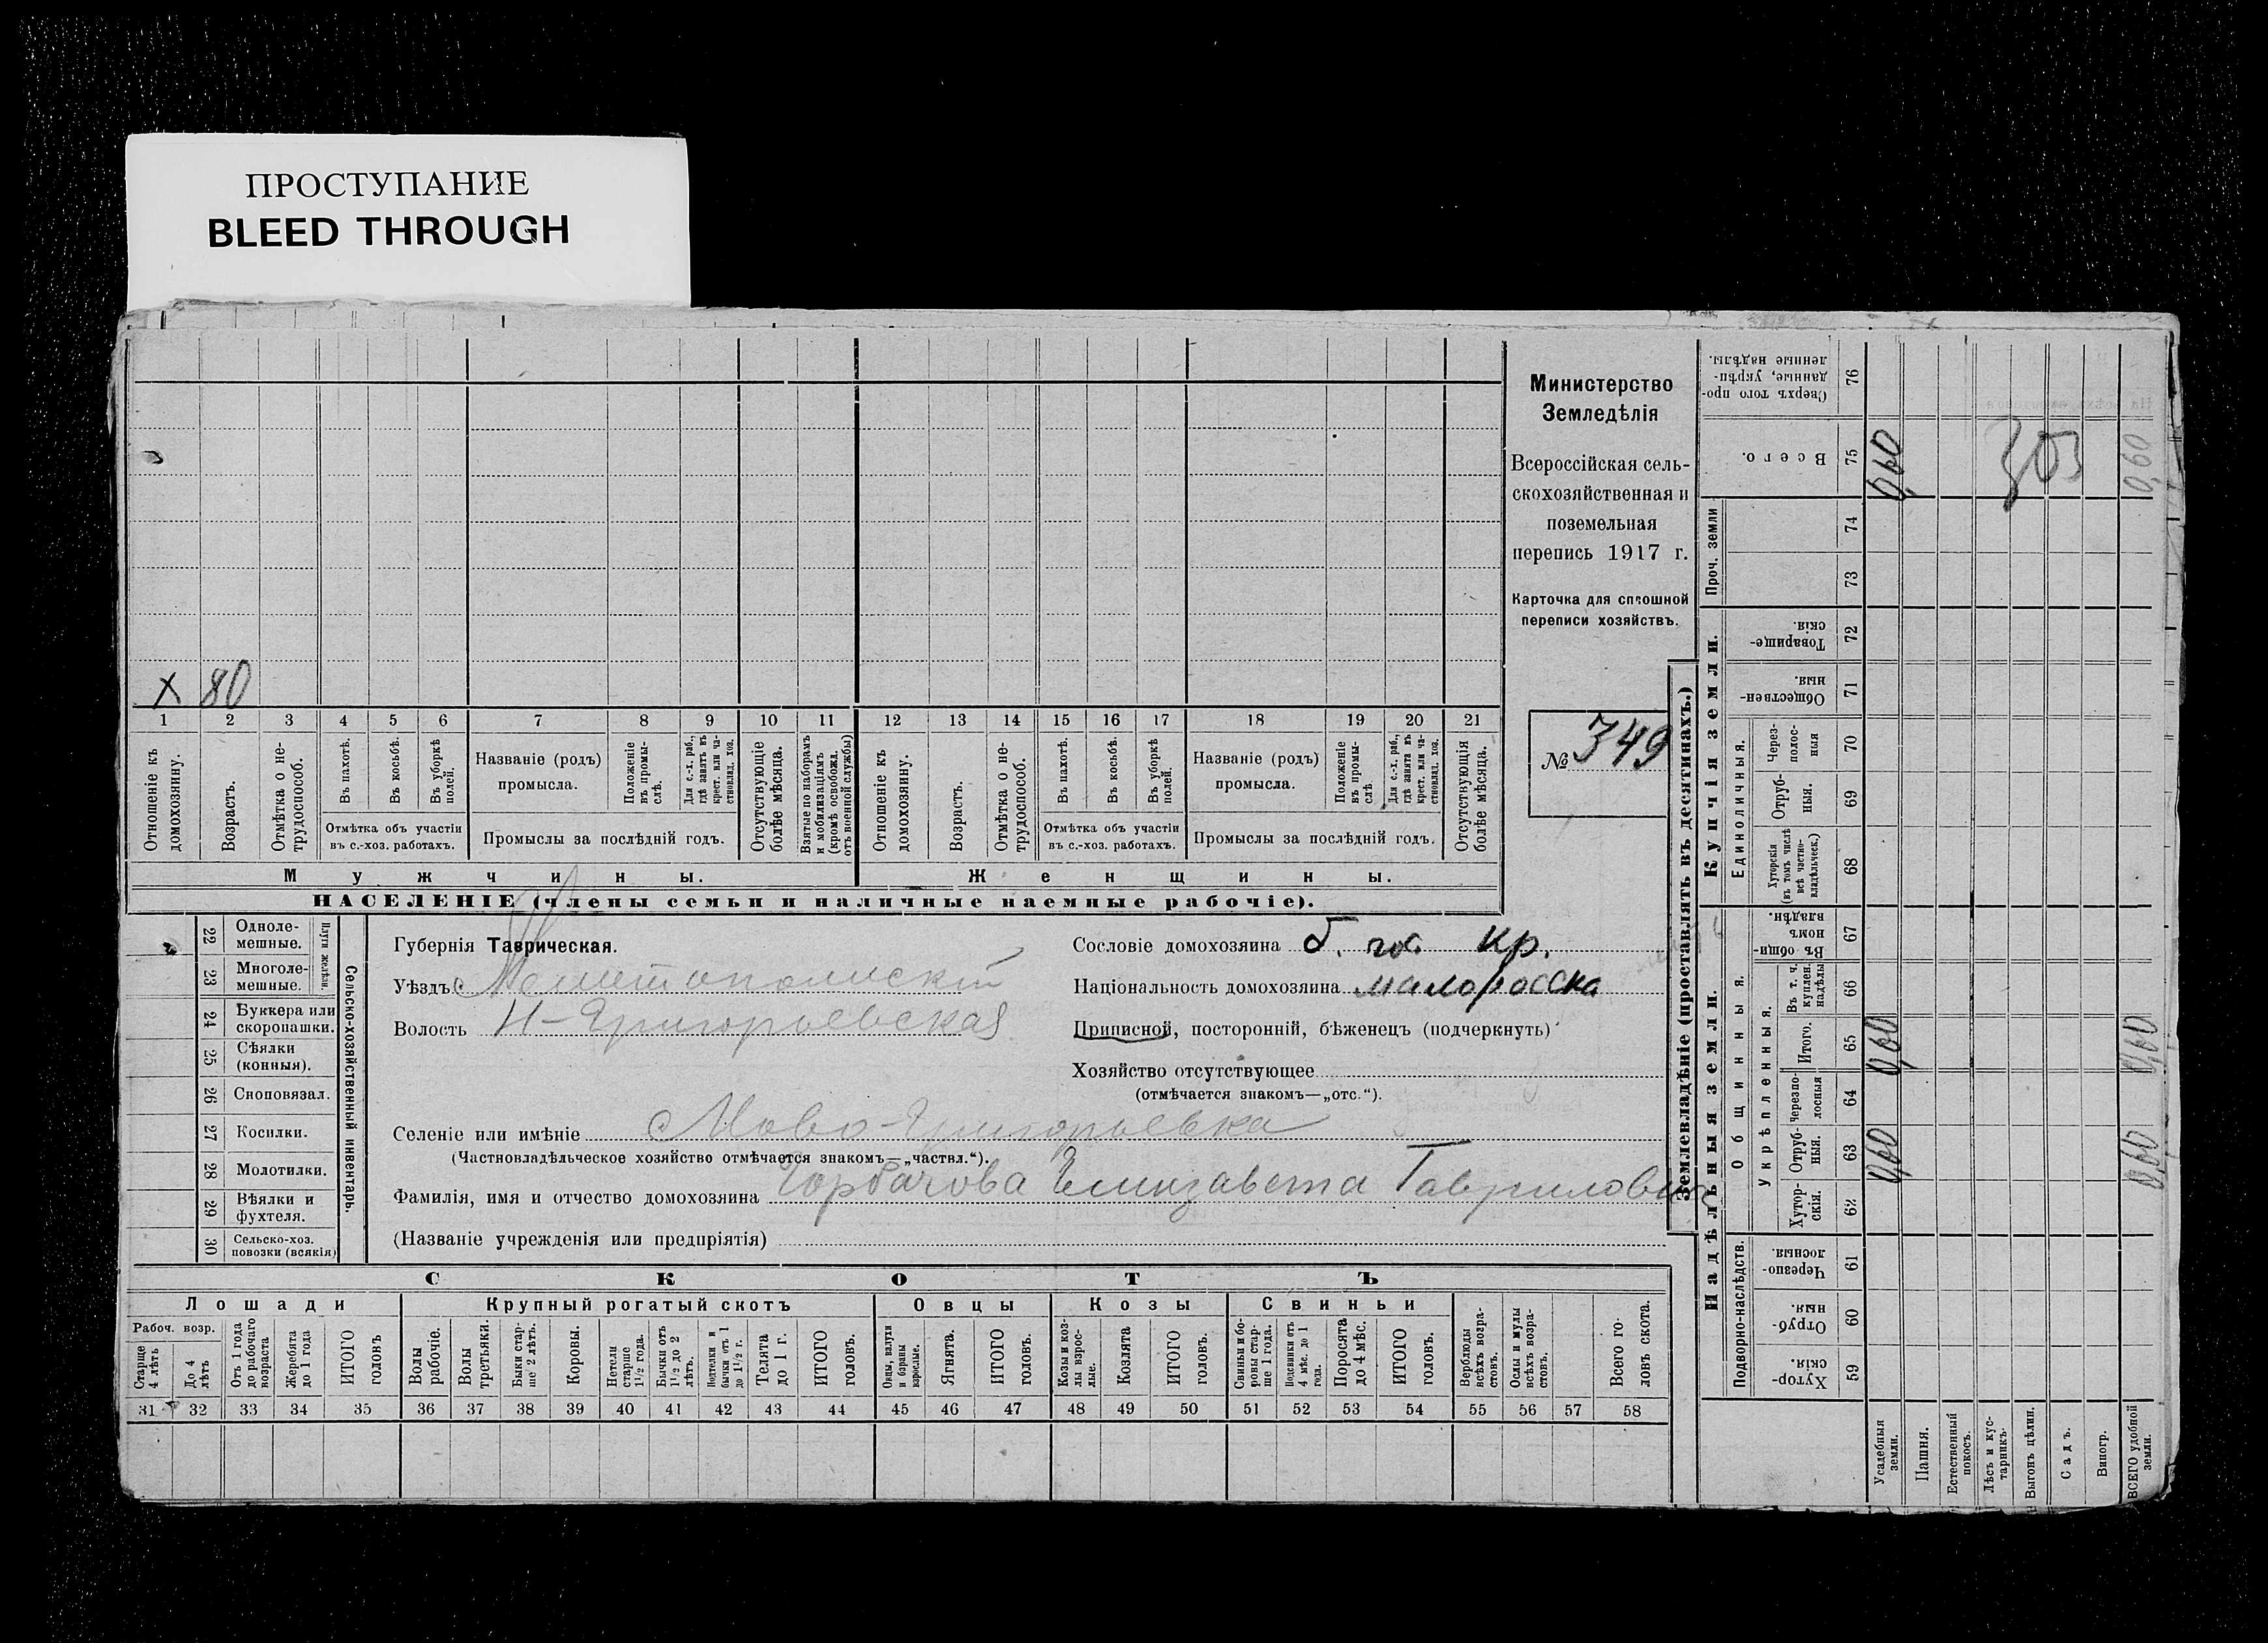 ПРОСТУПАНИЕ
BLEED THROUGH
x 80
1 2 3 4 5 6 7 8 9 10 11 12 13 14 15 16 17 18 19 20 21
Отношеніе къ домохозяину.
Возрастъ.
Отмѣтка о нетрудоспособ.
Въ пахотѣ.
Въ косьбѣ.
Въ уборкѣ полей.
Отмѣтка объ участіи
въ с.-хоз. работахъ.
Названіе (родъ)
промысла.
Положеніе въ промыслѣ.
Для с.-х. раб., гдѣ занятъ въ крест. или частновлад. хоз.
Промыслы за послѣдній годъ.
Отсутствующіе болѣе мѣсяца.
Взятые по наборамъ и мобилизаціямъ (кромѣ освобожд. отъ военной службы)
Отношеніе къ домохозяину.
Возрастъ.
Отмѣтка о нетрудоспособ.
Въ пахотѣ.
Въ косьбѣ.
Въ уборкѣ полей.
Отмѣтка объ участіи
въ с.-хоз. работахъ.
Названіе (родъ)
промысла.
Положеніе въ промыслѣ
Для с.-х. раб., гдѣ занята въ крест. или частновлад. хоз.
Промыслы за послѣдній годъ.
Отсутствующія болѣе мѣсяца.
Мужчины.
Женщины.
НАСЕЛЕНІЕ (члены семьи и наличные наемные рабочіе).
Министерство
Земледѣлія
Всероссійская сель-
скохозяйственная и
поземельная
перепись 1917 г.
Карточка для сплошной
переписи хозяйствъ.
№ 349
22 Одноле-
мешные.
23 Многоле-
мешные.
Плуги желѣзн.
24 Буккера или
скоропашки.
25 Сѣялки
(конныя).
26 Сноповязал.
27 Косилки.
28 Молотилки.
29 Вѣялки и
фухтеля.
30 Сельско-хоз.
повозки (всякія)
Сельско-хозяйственный инвентарь.
Губернія Таврическая.
Уѣздъ Мелитопольскій
Волость Н-Григорьевская
Селеніе или имѣніе Ново-Григорьевка
(Частновладѣльческое хозяйство отмѣчается знакомъ—„частвл.“).
Фамилія, имя и отчество домохозяина Горбачова Елизавета Гавриловна
(Названіе учрежденія или предпріятія)
Сословіе домохозяина б. гос. кр.
Національность домохозяина малоросска
Приписной, посторонній, бѣженецъ (подчеркнуть)
Хозяйство отсутствующее
(отмѣчается знакомъ—„отс.“).
СКОТЪ
Лошади
Крупный рогатый скотъ
Овцы
Козы
Свиньи
Рабоч. возр.
Старше 4 лѣтъ
До 4 лѣтъ
Отъ 1 года до рабочаго возраста
Жеребята до 1 года
ИТОГО головъ
Волы рабочіе.
Волы третьяки.
Быки старше 2 лѣтъ.
Коровы.
Нетели старше 1½ года.
Бычки отъ 1½ до 2 лѣтъ.
Подтелки и бычки отъ 1 до 1½ г.
Телята до 1 г.
ИТОГО головъ.
Овцы, валухи и бараны взрослые.
Ягнята.
ИТОГО головъ.
Козы и козлы взрослые.
Козлята
ИТОГО головъ.
Свиньи и боровы старше 1 года.
Подсвинки отъ 4 мѣс. до 1 года.
Поросята до 4 мѣс.
ИТОГО головъ.
Верблюды всѣхъ возрастовъ.
Ослы и мулы всѣхъ возрастовъ.
Всего головъ скота.
31 32 33 34 35 36 37 38 39 40 41 42 43 44 45 46 47 48 49 50 51 52 53 54 55 56 57 58
Землевладѣніе (проставлять въ десятинахъ.)
Надѣльныя земли.
Купчія земли.
Проч. земли
Подворно-наслѣдств.
Общинныя.
Укрѣпленныя.
Единоличныя.
Сверхъ того проданные, укрѣпленные надѣлы. 76
Всего. 75 0,60 303 0,60
74
73
Товарищескія. 72
Общественныя. 71
Черезполосныя 70
Отрубныя. 69
Хуторскія (въ томъ числѣ всѣ частновладѣльческ.) 68
Въ общинномъ владѣн. 67
Въ т. ч. куплен. надѣлы 66
Итого. 65 0,60 0,60
Черезполосныя 64
Отрубныя. 63 0,60 0,60
Хуторскія. 62
Черезполосныя. 61
Отрубныя. 60
Хуторскія. 59
Усадебныя земли.
Пашня.
Естественный покосъ.
Лѣсъ и кустарникъ.
Выгонъ цѣлин.
Садъ.
Виногр.
ВСЕГО удобной земли.